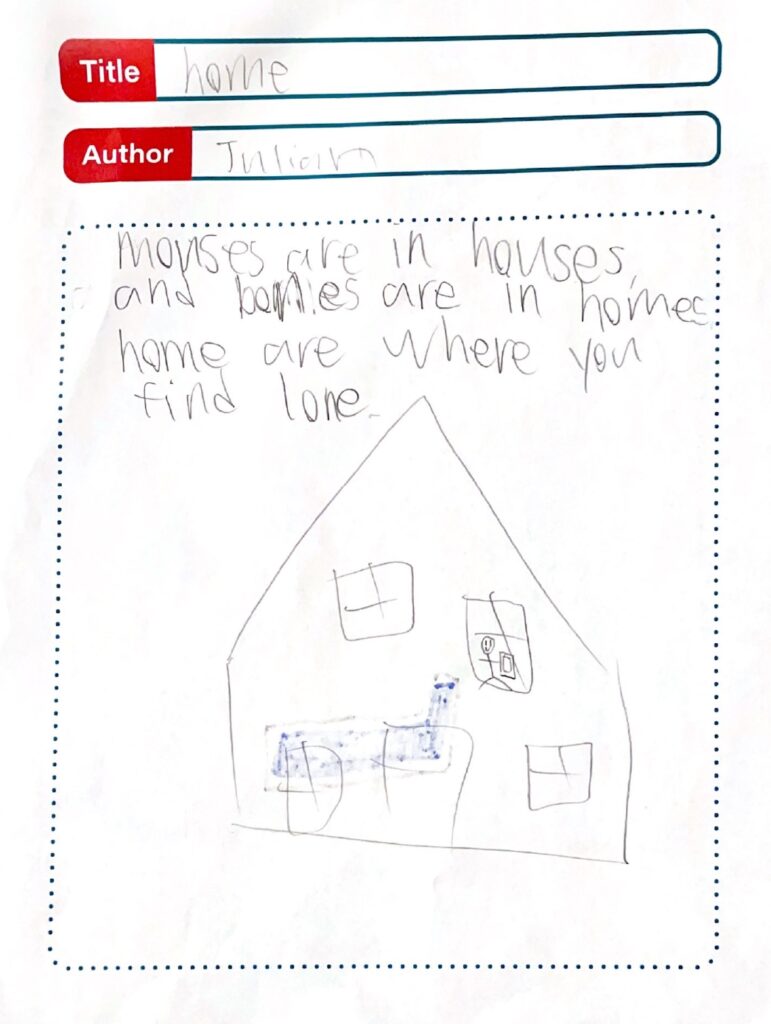 Title home
Author Julian
mouses are in houses,
and are in homes.
home are where you
find love.